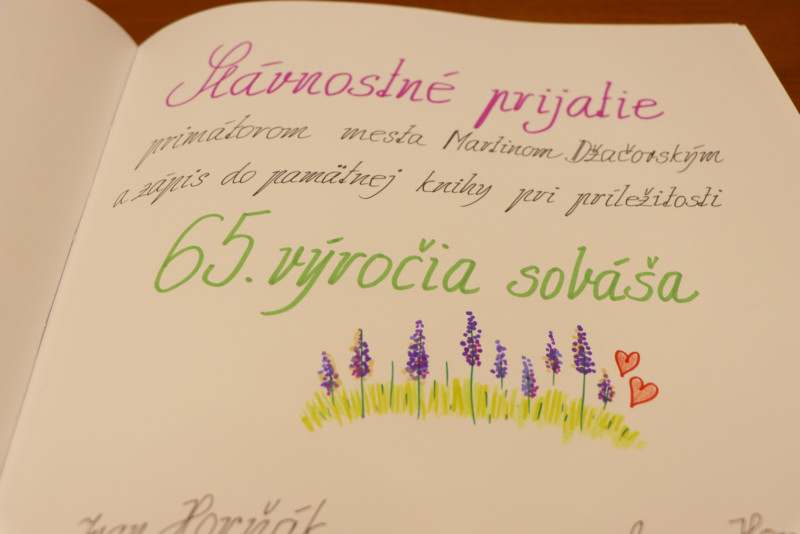 Slávnostné prijatie
primátorom mesta Martinom Džačovským
a zápis do pamätnej knihy pri príležitosti
65. výročia sobáša
Ivan Horňák